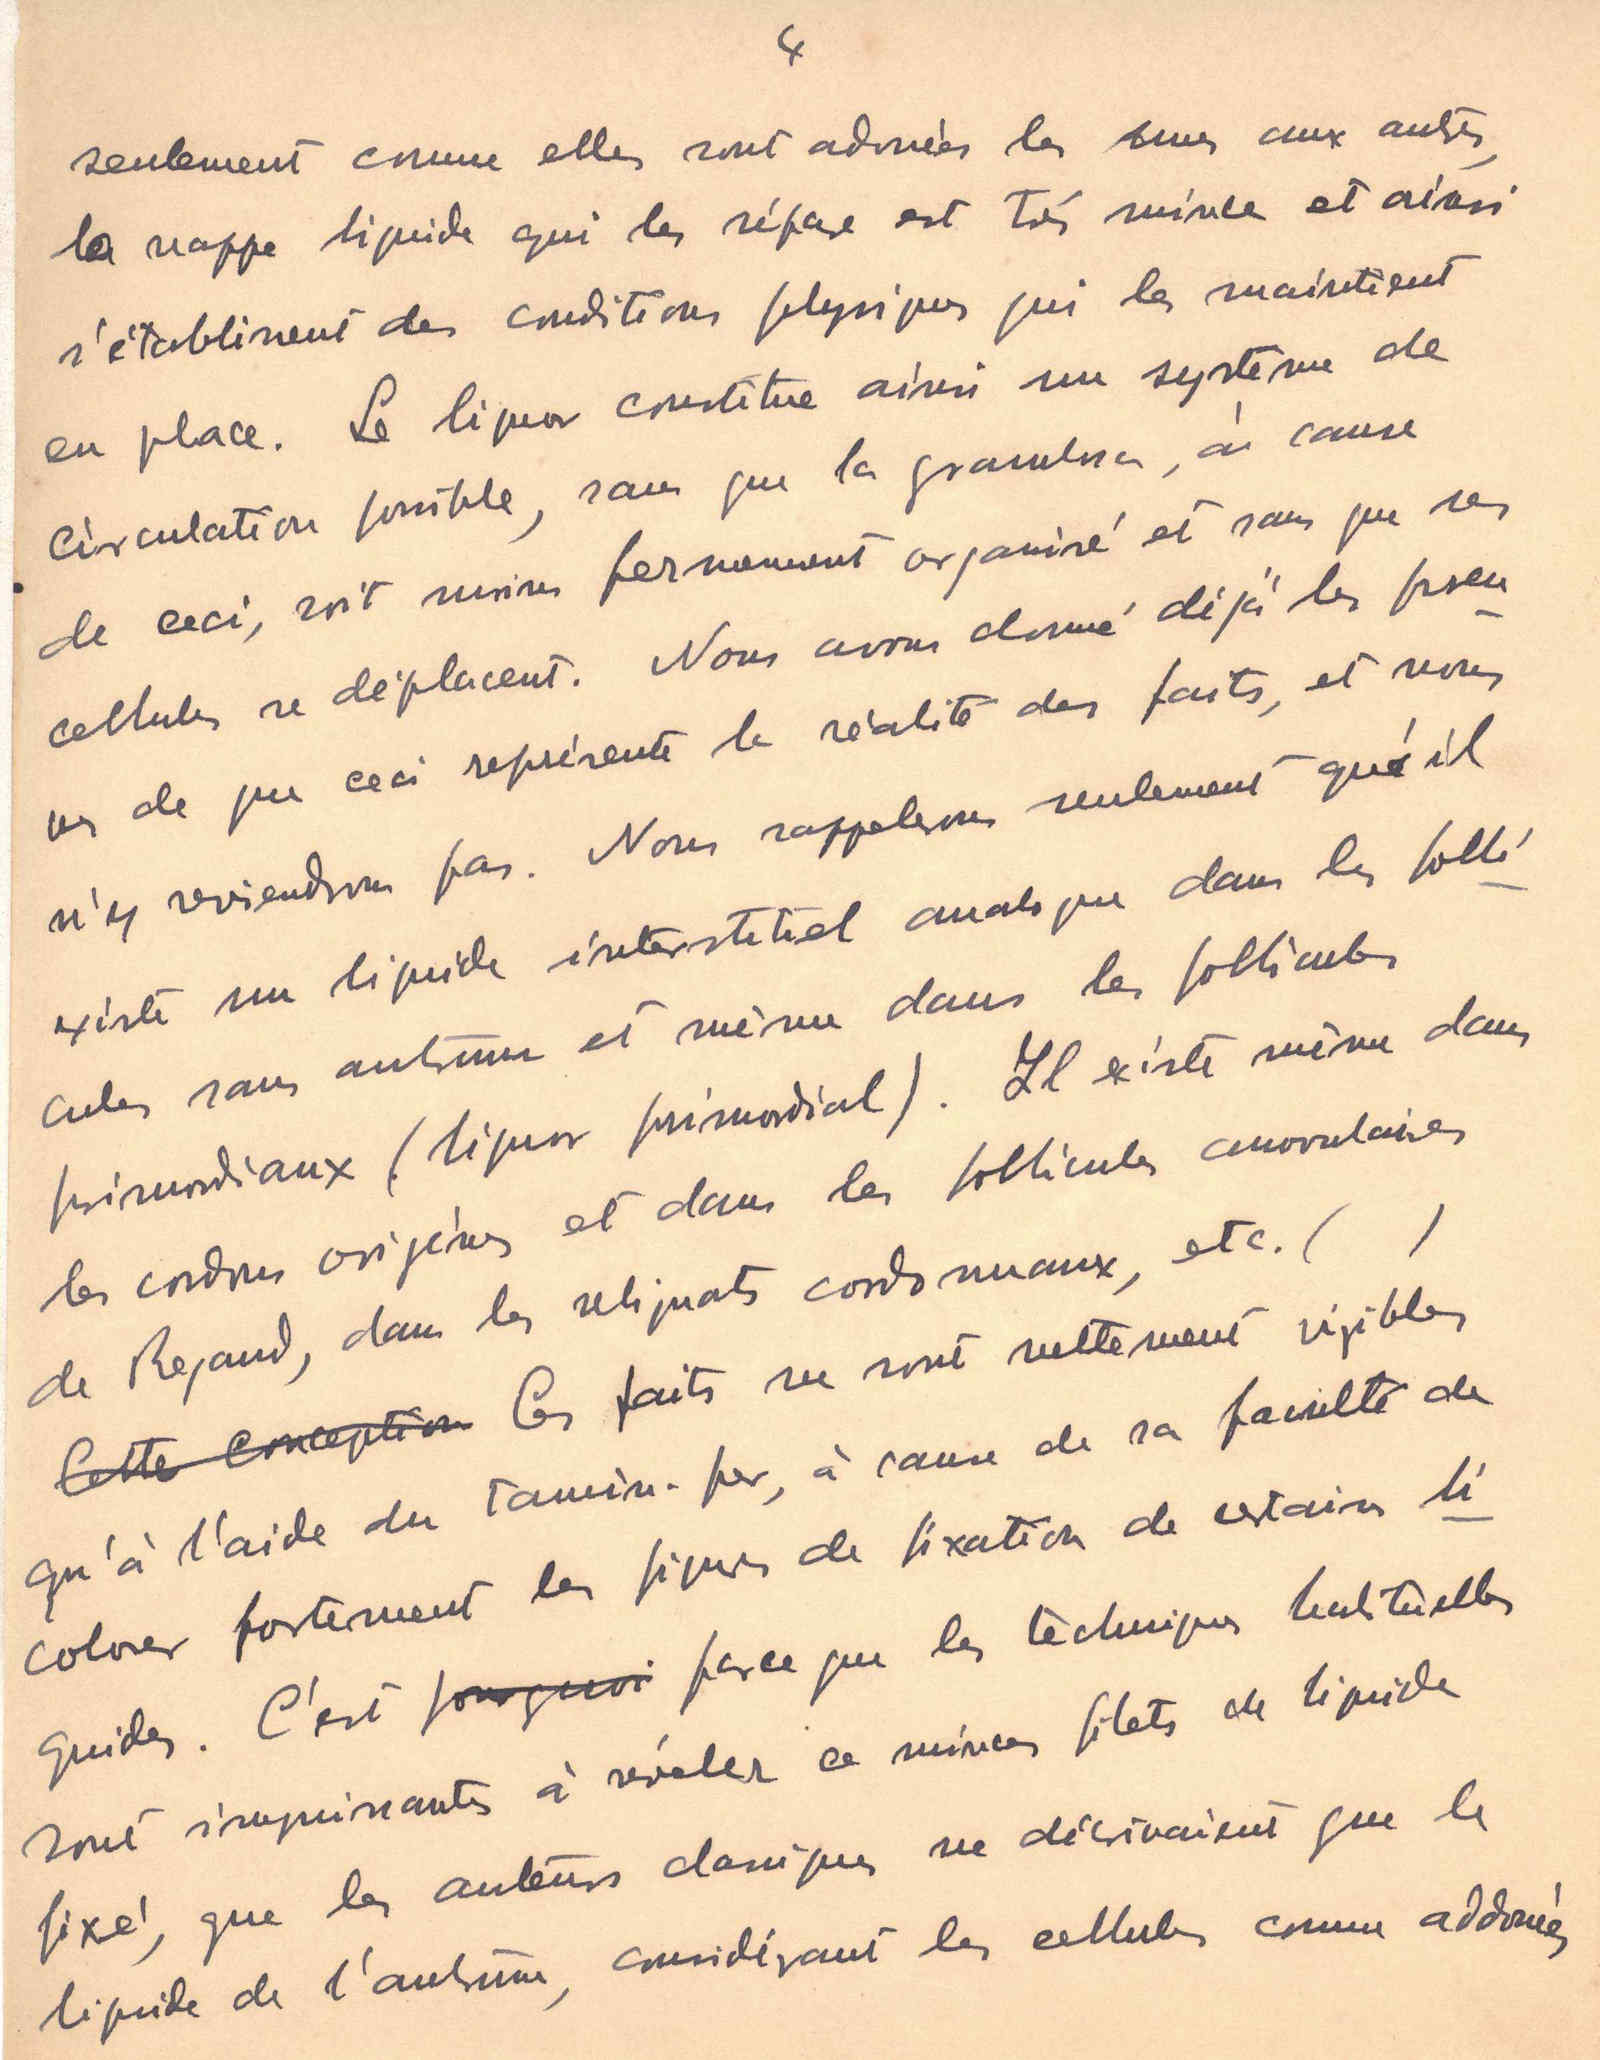 4
seulement comme elles sont adossées les unes aux autres,
la nappe liquide qui les sépare est très mince et ainsi
s'établissent des conditions physiques qui les maintient
en place. Le liquor constitue ainsi un système de
circulation possible, sans que la granulosa, à cause
de ceci, soit moins fermement organisé et sans que ses
cellules se déplacent. Nous avons donné déjà les preu
ves de que ceci représente la réalité des faits, et nous
n'y reviendrons pas. Nous rappelerons seulement qu'il
existe un liquide interstitiel analogue dans les folli
cules sans antrum et même dans les follicules
primordiaux (liquor primordial). Il existe même dans
les cordons origènes et dans les follicules anovulaires
de Regaud, dans les reliquats cordonnaux, etc. ( )
Cette conception Ces faits ne sont nettement visibles
qu'à l'aide du tannin-fer, à cause de sa faculté de
colorer fortement les figures de fixation de certains li
quides. C'est pourquoi parce que les techniques habituelles
sont impuissantes à révéler ce minces filets de liquide
fixé, que les auteurs classiques ne décrivaient que le
liquide de l'antrum, considérant les cellules comme addossées